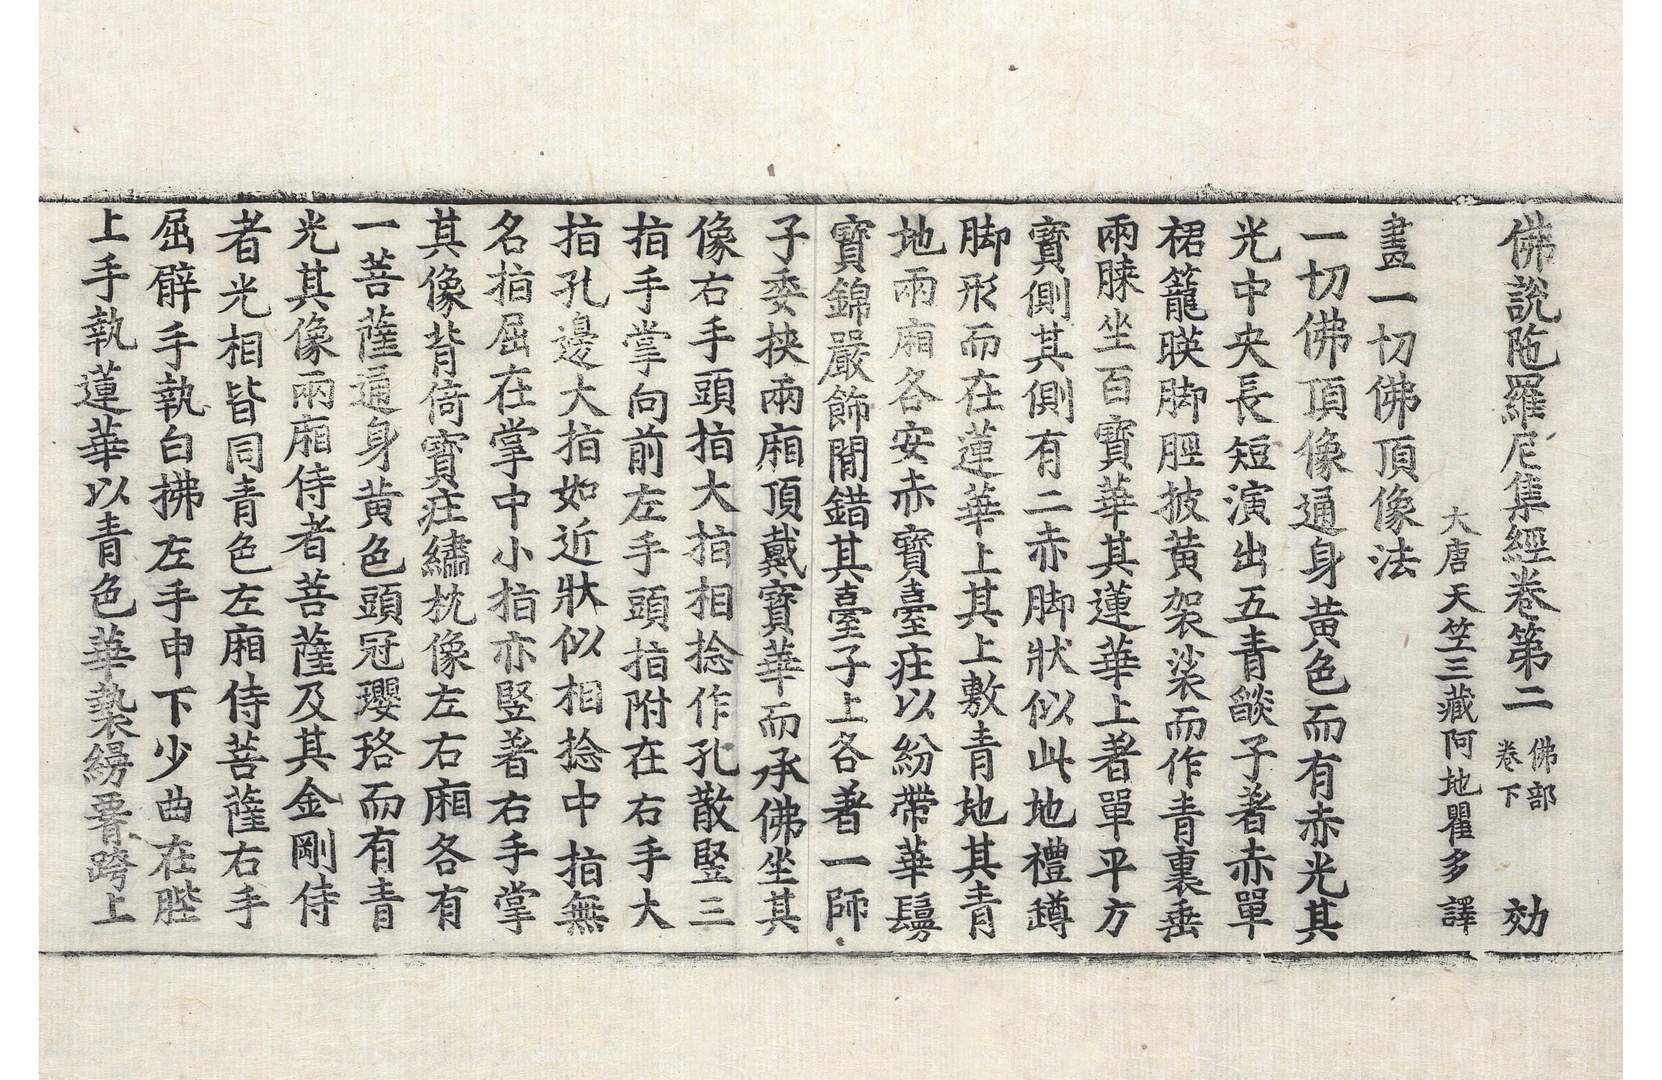 佛說陁羅尼集經卷第二 佛部卷下 効
大唐天竺三藏阿地瞿多 譯
畫一切佛頂像法
一切佛頂像通身黄色而有赤光其
光中央長短演出五青燄子著赤單
裙籠暎脚脛披黄袈裟而作青裏垂
兩䏶坐百寳華其蓮華上著單平方
寳側其側有二赤脚狀似此地禮蹲
脚形而在蓮華上其上敷青地其青
地兩廂各安赤寳臺疘以紛帶華鬘
寳錦嚴飾閒錯其臺子上各著一師
子委挾兩廂頂戴寳華而承佛坐其
像右手頭指大指相捻作孔散竪三
指手掌向前左手頭指附在右手大
指孔邊大指如近狀似相捻中指無
名指屈在掌中小指亦竪著右手掌
其像背倚寳疘繡枕像左右廂各有
一菩薩通身黄色頭冠瓔珞而有青
光其像兩廂侍者菩薩及其金剛侍
者光相皆同青色左廂侍菩薩右手
屈臂手執白拂左手申下少曲在䏶
上手執蓮華以青色華㲲縎罯跨上